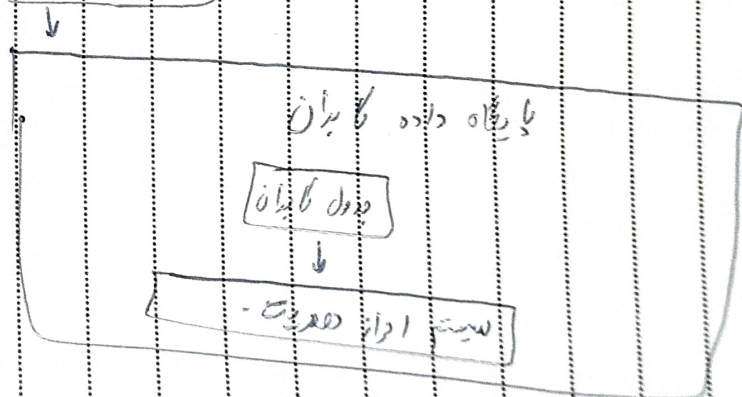 پایگاه داده کابران
جدول کابران
سیستم احراز هویت.